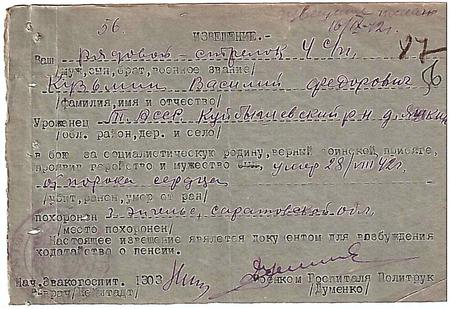 56.
10/IX-42г.
ИЗВЕЩЕНИЕ.-
87
Ваш рядовой - стрелок 4 с/п,
/муж, сын, брат, военное звание/
Кузьмин Василий Федорович
/фамилия, имя и отчество/
Уроженец Т. АССР. Куйбышевский р-н д.
/обл. район, дер. и село/
в бою за социалистическую родину, верный воинской присяге,
проявив геройство и мужество умер 28/VIII 42г.
от порока сердца
/убит, ранен, умер от ран/
похоронен г. Энгельс, саратовской обл.
/место похоронен/
Настоящее извещение является документом для возбуждения
ходатайства о пенсии.
Нач. Эвакогоспит. 1303 Военком Госпиталя Политрук
врач /Думенко/